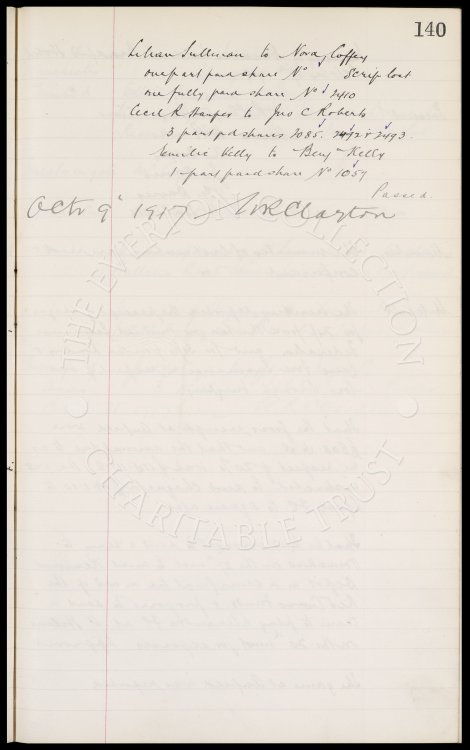 140
Lilian Sullivan to Nora Coffey
one part paid share No Scrip lost
one fully paid share No 2410
Cecil R Harper to Jno C Roberts
3 part pd shares 2085. 2492 & 2493.
Emilie Kelly to Benjn Kelly
1 part paid share No 1057
Passed
Octr 9th 1917 W R Clayton
THE EVERTON COLLECTION
CHARITABLE TRUST